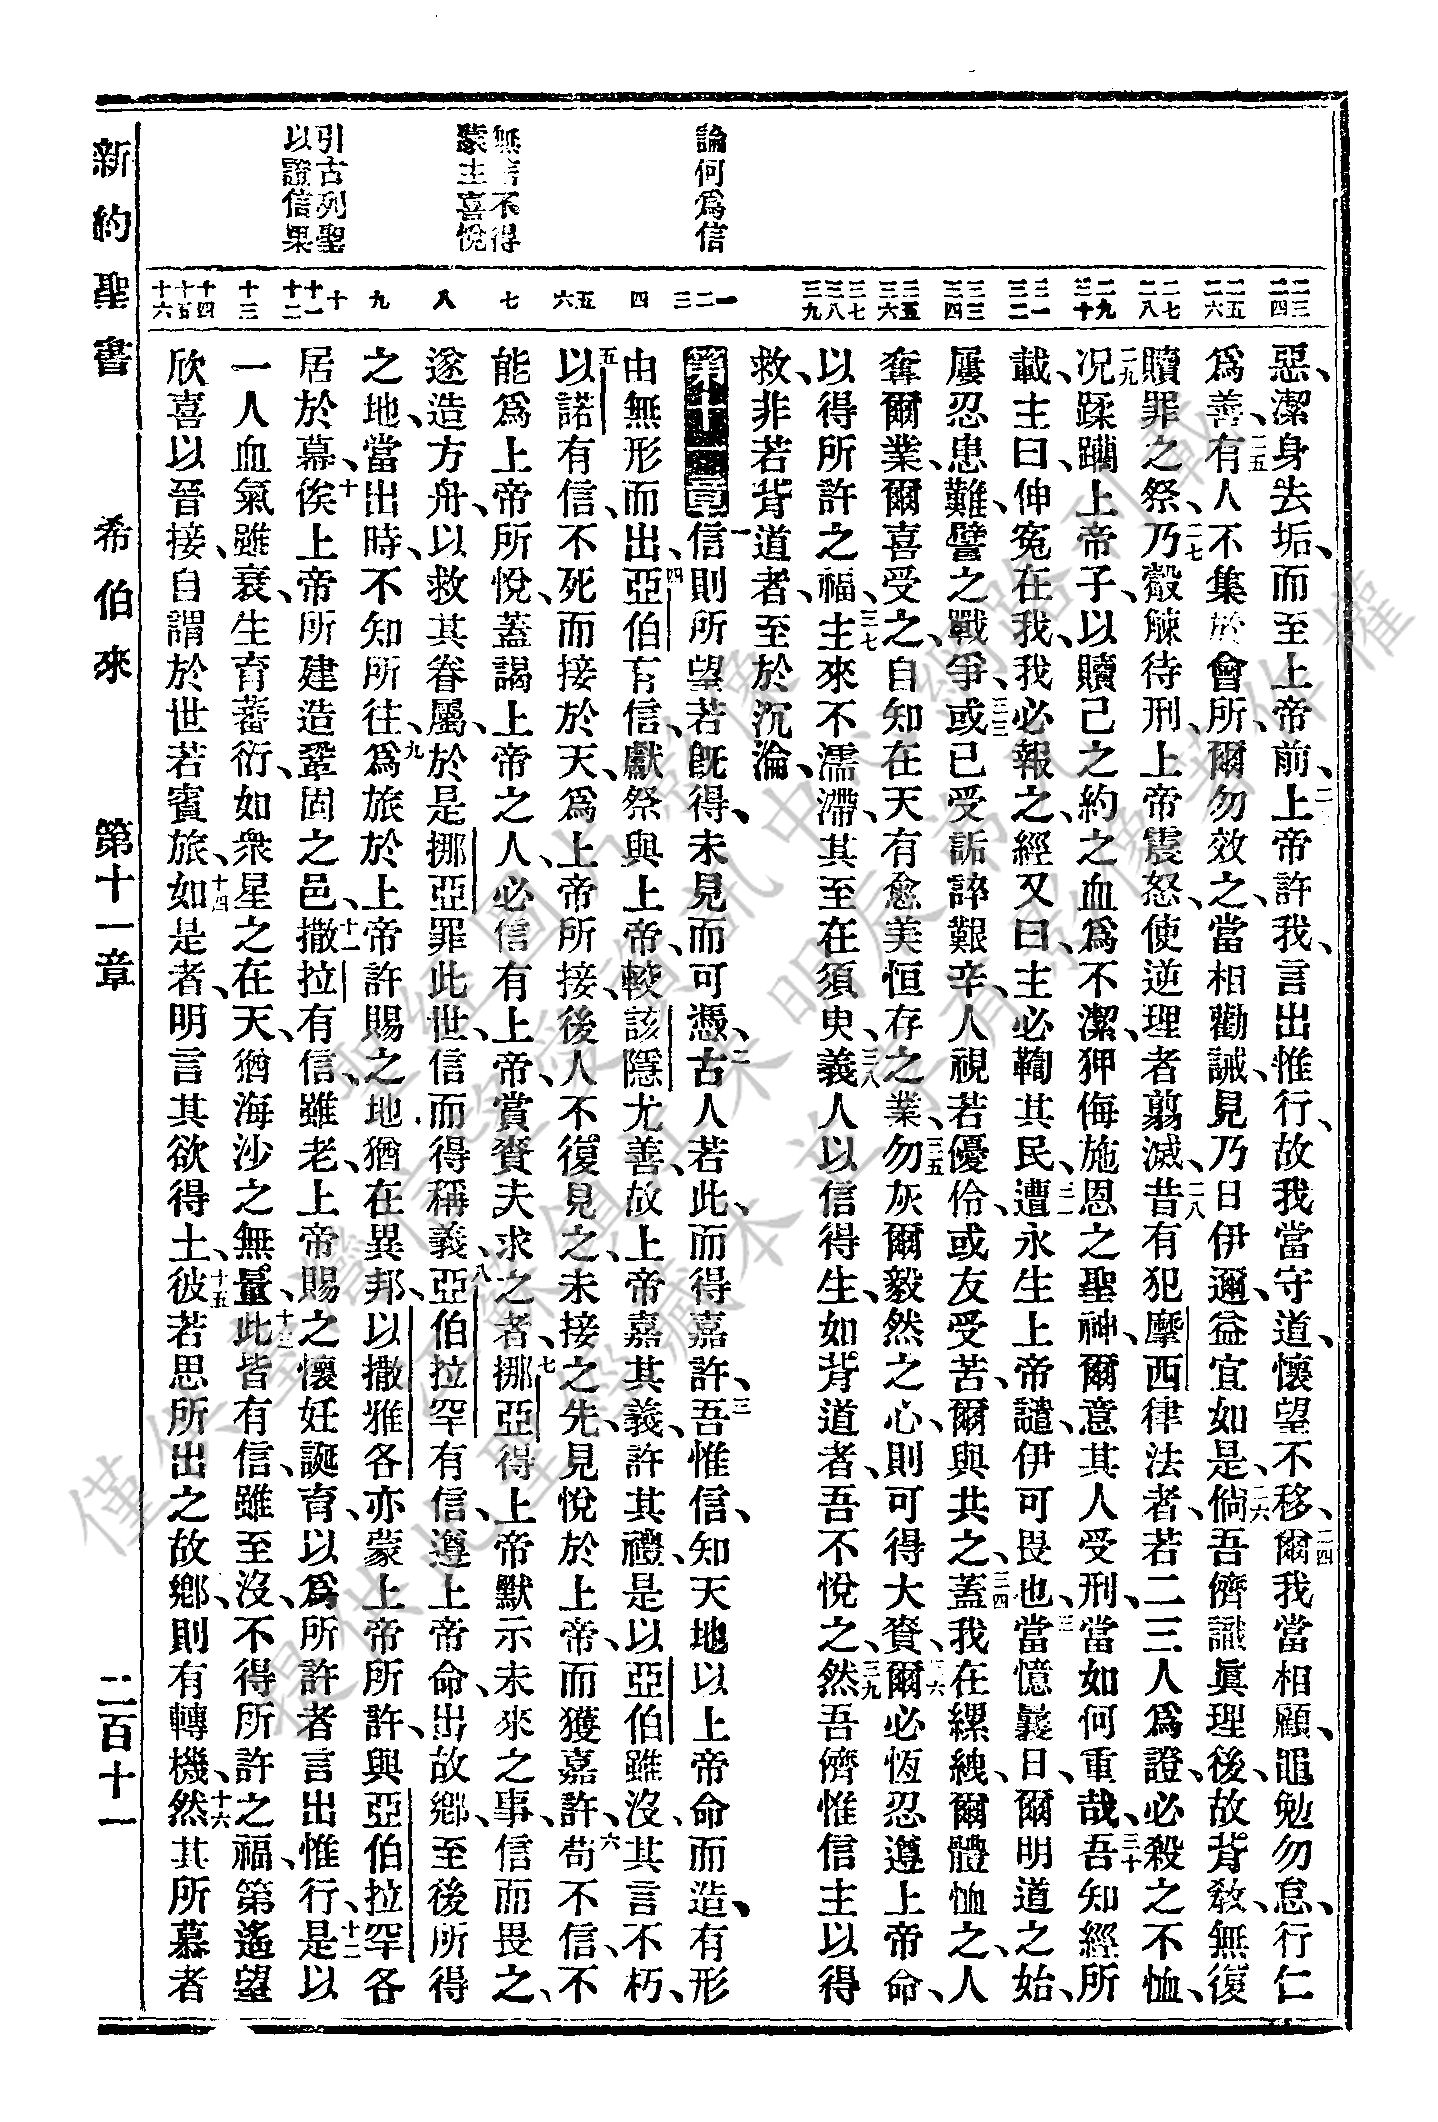 新約聖書 希伯來 第十一章 二百十一
論何爲信
無信不得
蒙主喜悅
引古列聖
以證信果
惡、潔身去垢、而至上帝前、二三上帝許我、言出惟行、故我當守道、懷望不移、二四爾我當相顧、黽勉勿怠、行仁
爲善、二五有人不集於會所、爾勿效之、當相勸誡、見乃日伊邇、益宜如是、二六倘吾儕識眞理後、故背敎、無復
贖罪之祭、二七乃觳觫待刑、上帝震怒、使逆理者翦滅、二八昔有犯摩西律法者、若二三人爲證、必殺之不恤、
二九况蹂躪上帝子、以贖己之約之血爲不潔、狎侮施恩之聖神、爾意其人受刑、當如何重哉、三十吾知經所
載、主曰、伸寃在我、我必報之、經又曰、主必鞫其民、三一遭永生上帝譴、伊可畏也、三二當憶曩日、爾明道之始、
屢忍患難、譬之戰爭、三三或已受詬誶艱辛、人視若優伶、或友受苦、爾與共之、三四蓋我在縲絏、爾體恤之、人
奪爾業、爾喜受之、自知在天有愈美恒存之業、三五勿灰爾毅然之心、則可得大賚、三六爾必恆忍遵上帝命、
以得所許之福、三七主來不濡滯、其至在須臾、三八義人以信得生、如背道者、吾不悅之、三九然吾儕惟信主以得
救、非若背道者、至於沉淪、
第十一章 一信則所望若旣得、未見而可憑、二古人若此、而得嘉許、三吾惟信、知天地以上帝命而造、有形
由無形而出、四亞伯有信、獻祭與上帝、較該隱尤善、故上帝嘉其義、許其禮、是以亞伯雖沒、其言不朽、
五以諾有信、不死而接於天、爲上帝所接、後人不復見之、未接之先、見悅於上帝、而獲嘉許、六苟不信、不
能爲上帝所悅、蓋謁上帝之人、必信有上帝、賞賚夫求之者、七挪亞得上帝默示未來之事、信而畏之、
遂造方舟、以救其眷屬、於是挪亞罪此世、信而得稱義、八亞伯拉罕有信、遵上帝命、出故鄉、至後所得
之地、當出時、不知所往、九爲旅於上帝許賜之地、猶在異邦、以撒雅各、亦蒙上帝所許、與亞伯拉罕各
居於幕、十俟上帝所建造鞏固之邑、十一撒拉有信、雖老、上帝賜之懷妊誕育、以爲所許者言出惟行、十二是以
一人血氣雖衰、生育蕃衍、如衆星之在天、猶海沙之無量、十三此皆有信、雖至沒、不得所許之福、第遙望
欣喜以晉接、自謂於世若賓旅、十四如是者、明言其欲得土、十五彼若思所出之故鄉、則有轉機、十六然其所慕者